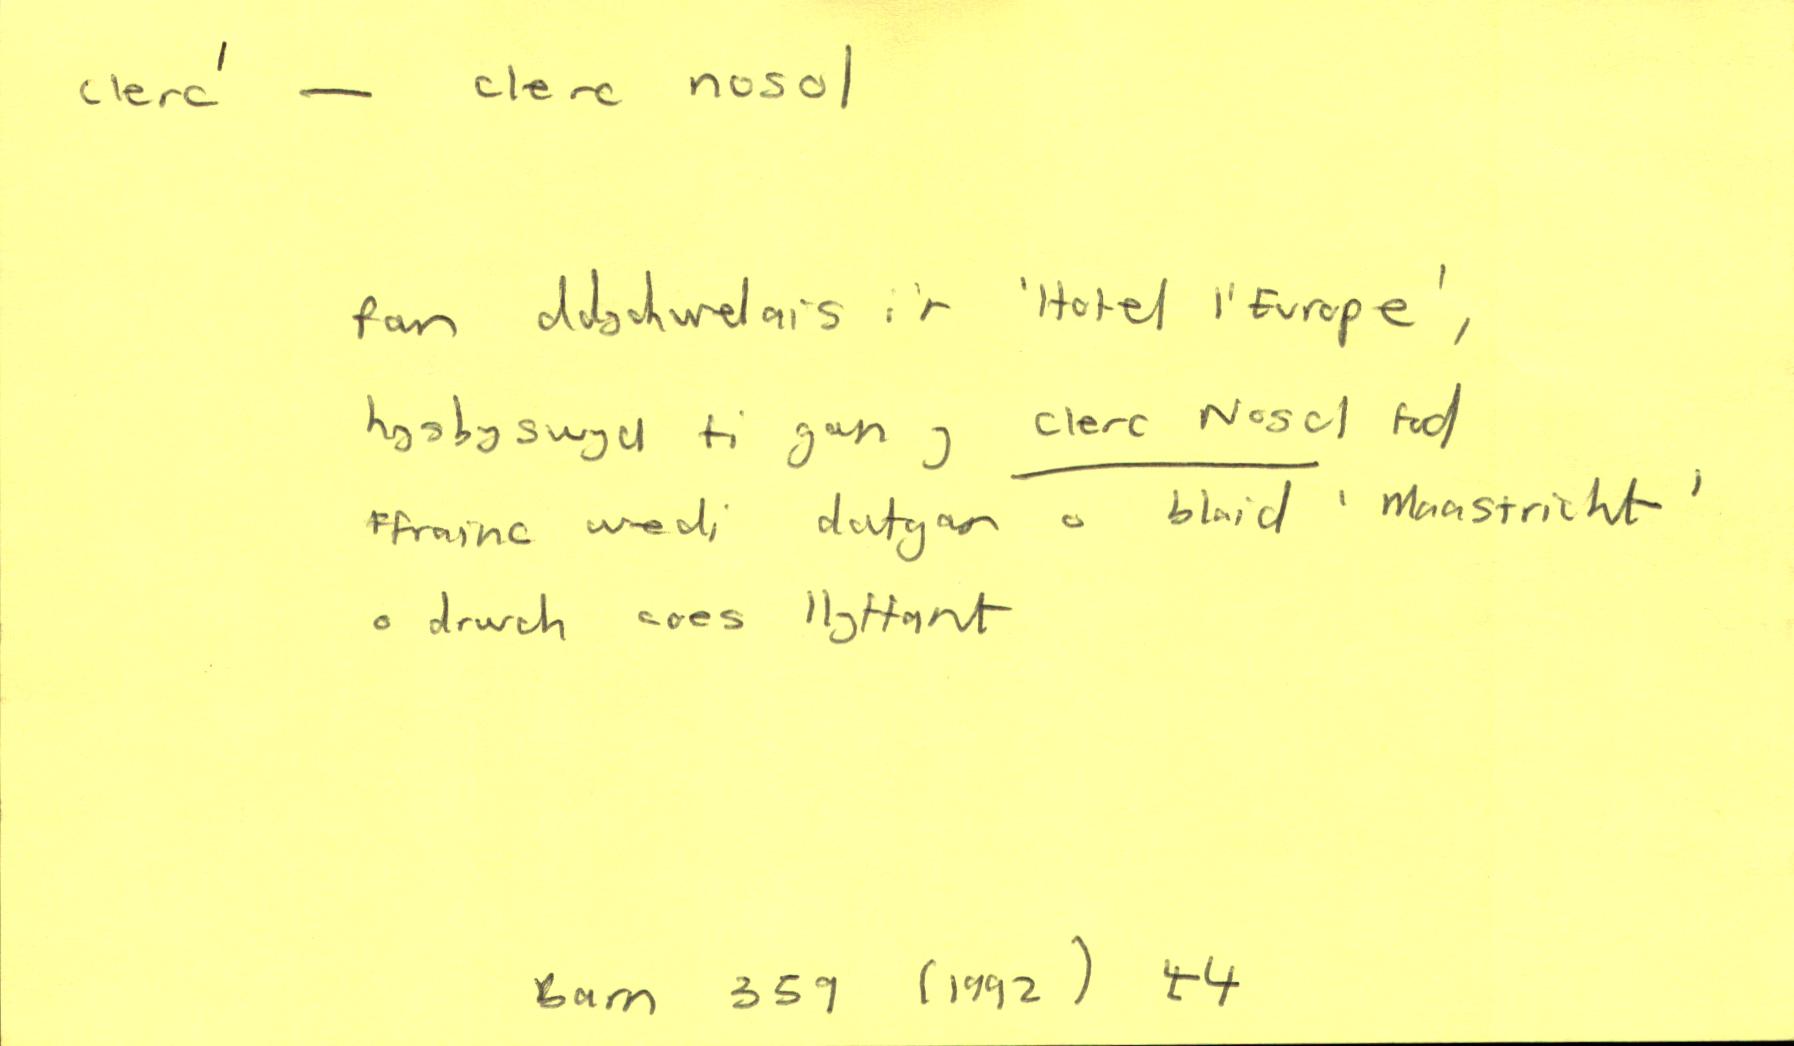 clerc' — clerc nosol
fan ddychwelais i'r 'Hotel l'Europe',
hysbyswyd fi gan y clerc Nosol fod
Ffrainc wedi datgan o blaid 'Maastricht'
o drwch coes llyffant
Barn 359 (1992) 44